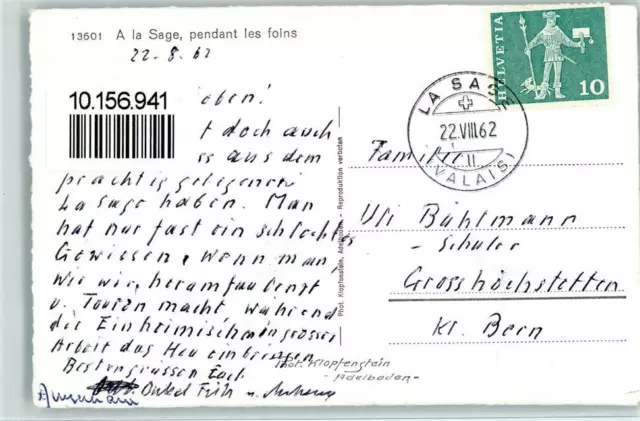 13601 A la Sage, pendant les foins
22.8.62
HELVETIA
10
10.156.941
LA SAGE
22.VIII.62
11
(VALAIS)
oben!
t doch auch
s aus dem
prächtig gelegenen
La Sage haben. Man
hat nur fast ein schlechtes
Gewissen, wenn man,
wie wir, herumfaulenzt
u. Touren macht während
die Einheimischen in grosser
Arbeit das Heu einbringen
Besten grüssen Euch
Onkel Fritz u.
Phot. Klopfenstein, Adelboden - Reproduktion verboten
Familie
Uli Bühlmann
- Schüler
Grosshöchstetten
Kt. Bern
Phot. Klopfenstein
- Adelboden -